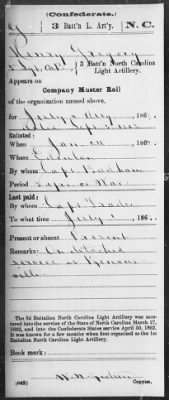 (Confederate.)
3 Batt'n L. Art'y. N. C.
Henry Gregory
3 Batt'n North Carolina
Light Artillery.
Appears on
Company Muster Roll
of the organization named above,
for July & Aug 186
Enlisted:
When Jan 186
Where Edenton
By whom Capt. Badham
Period
Last paid:
By whom Capt
To what time July 1 186
Present or absent Present
Remarks: On detached
service at Kenans
ville
The 3d Battalion North Carolina Light Artillery was mus-
tered into the service of the State of North Carolina March 17,
1862, and into the Confederate States service April 30, 1862.
It was known for a few months when first organized as the 1st
Battalion North Carolina Light Artillery.
Book mark:
(642)
Copyist.